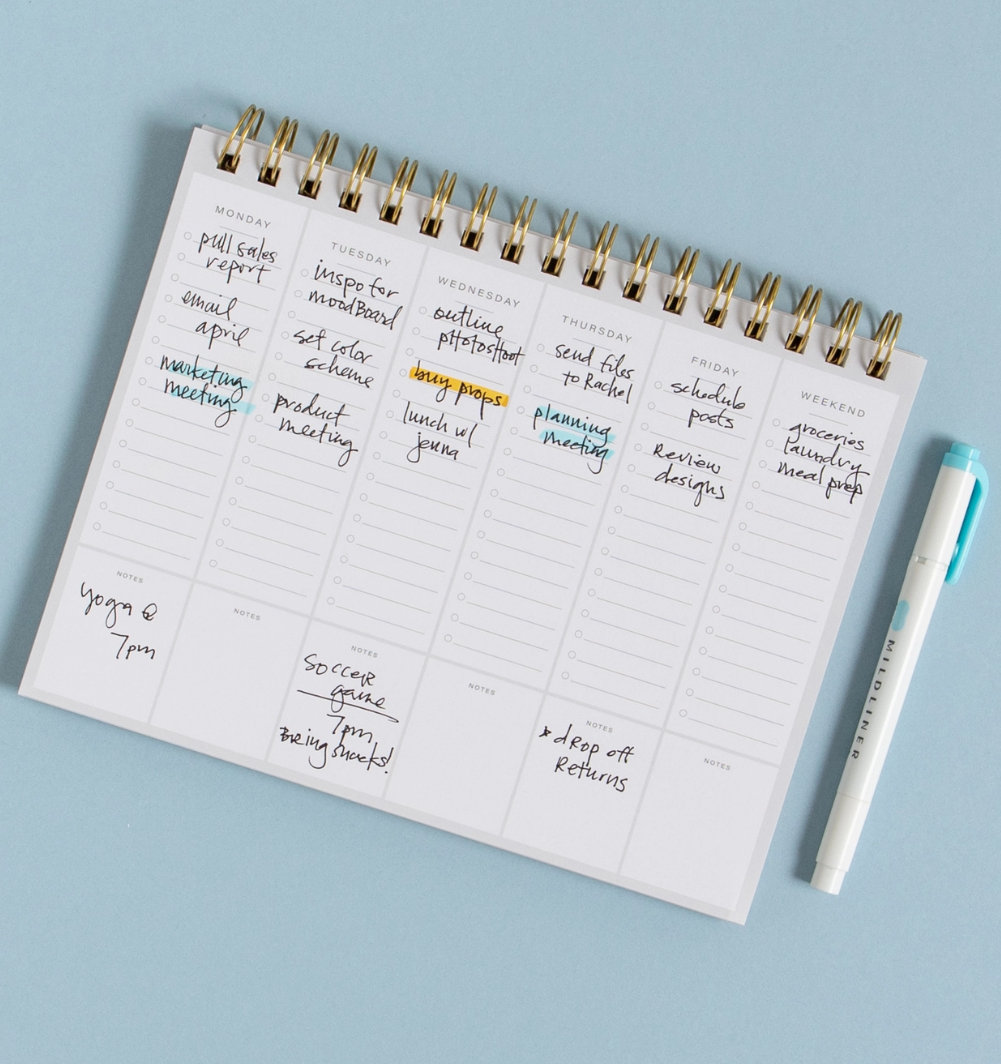 MONDAY
pull sales
report
email
april
marketing
meeting
TUESDAY
inspo for
moodBoard
set color
scheme
product
meeting
WEDNESDAY
outline
photoshoot
buy props
lunch w/
jenna
THURSDAY
send files
to Rachel
planning
meeting
FRIDAY
schedule
posts
Review
designs
WEEKEND
groceries
laundry
meal prep
NOTES
yoga @
7pm
NOTES
NOTES
SOCCER
game
7pm
Bring snacks!
NOTES
NOTES
* dRop off
Returns
NOTES
MILDLINER